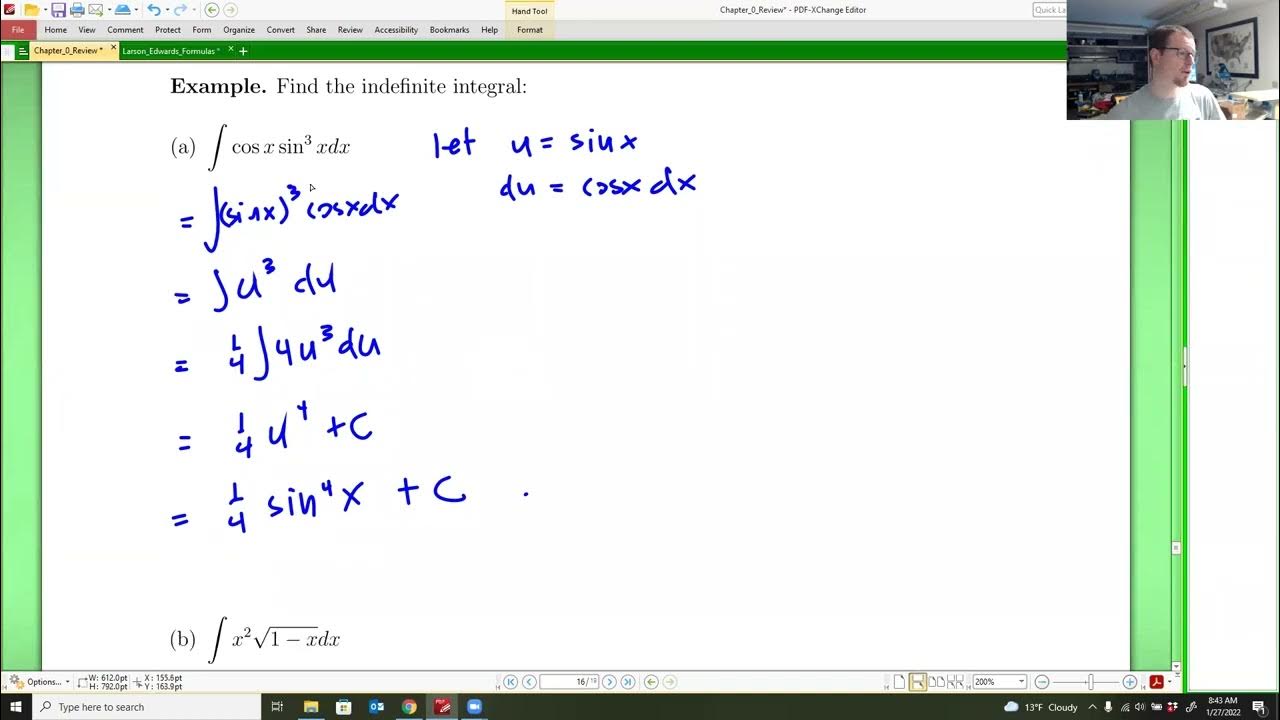 Hand Tool
Chapter_0_Review* - PDF-XChange Editor
Quick La
File Home View Comment Protect Form Organize Convert Share Review Accessibility Bookmarks Help Format
Chapter_0_Review * × Larson_Edwards_Formulas * × +
Example. Find the indefinite integral:
(a) ∫ cos x sin³ xdx let u = sin x
du = cosx dx
= ∫(sinx)³ cosxdx
= ∫u³ du
= 1/4 ∫4u³du
= 1/4 u⁴ + C
= 1/4 sin⁴x + C .
(b) ∫ x²√(1 − x)dx
Options...
W: 612.0pt
H: 792.0pt
X: 155.6pt
Y: 163.9pt
16/18
200%
Type here to search
13°F Cloudy
8:43 AM
1/27/2022